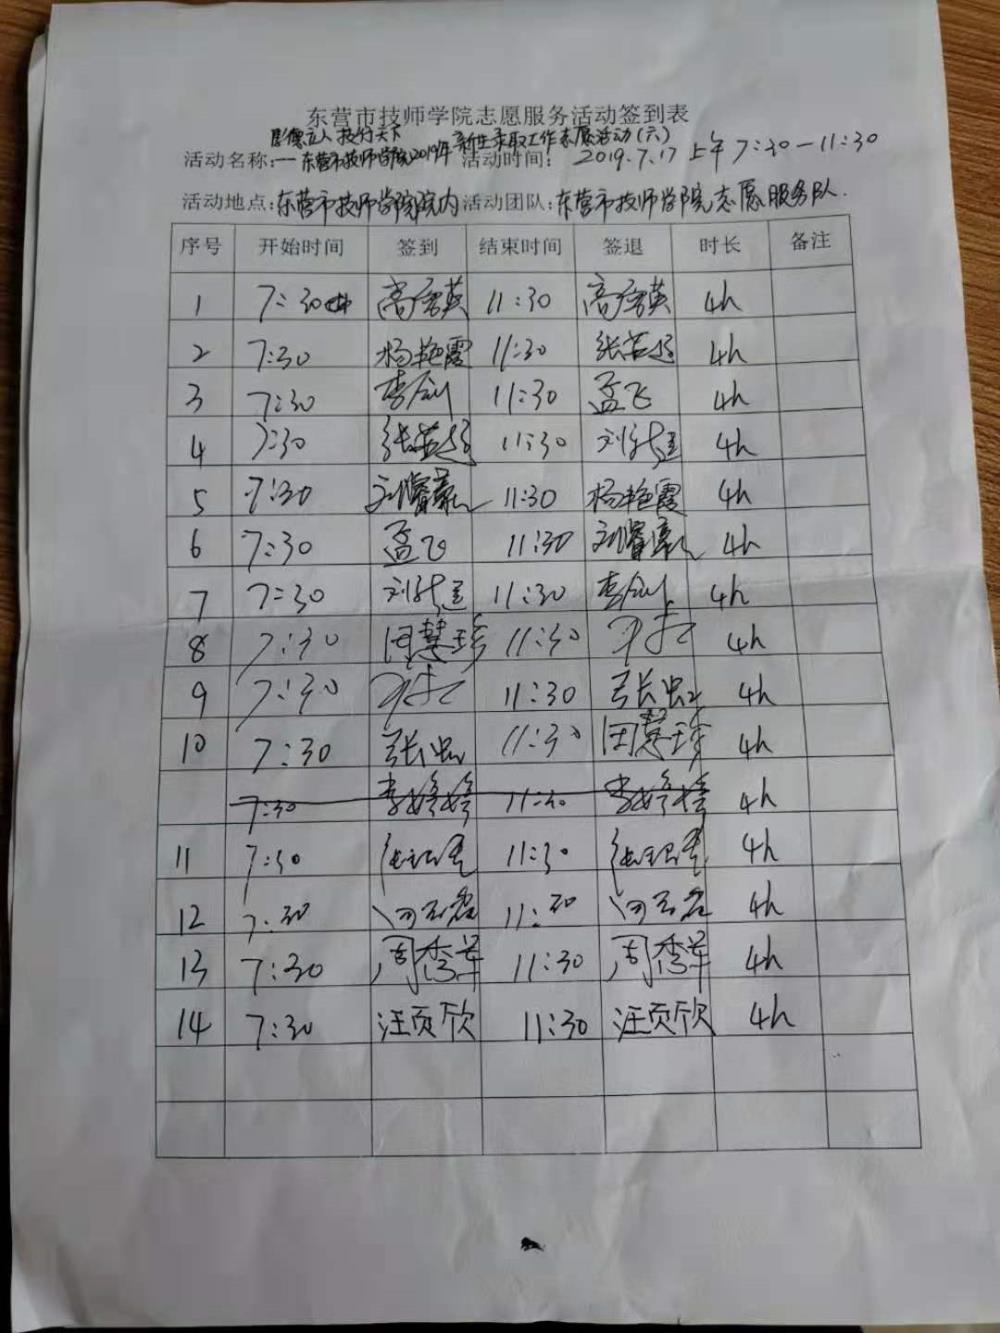 东营市技师学院志愿服务活动签到表
立人 技行天下
活动名称:一东营市技师学院2019年新生录取工作志愿活动(六) 活动时间: 2019.7.17 上午 7:30—11:30
活动地点:东营市技师学院院内 活动团队:东营市技师学院志愿服务队.
序号 开始时间 签到 结束时间 签退 时长 备注
1 7:30 高秀英 11:30 高秀英 4h
2 7:30 杨艳霞 11:30 4h
3 7:30 11:30 孟飞 4h
4 7:30 11:30 4h
5 7:30 11:30 杨艳霞 4h
6 7:30 孟飞 11:30 4h
7 7:30 11:30 4h
8 7:30 田慧珍 11:30 4h
9 7:30 11:30 张虹 4h
10 7:30 张虹 11:30 田慧珍 4h
7:30 李婷婷 11:30 李婷婷 4h
11 7:30 11:30 4h
12 7:30 11:30 4h
13 7:30 周秀军 11:30 周秀军 4h
14 7:30 汪页欣 11:30 汪页欣 4h